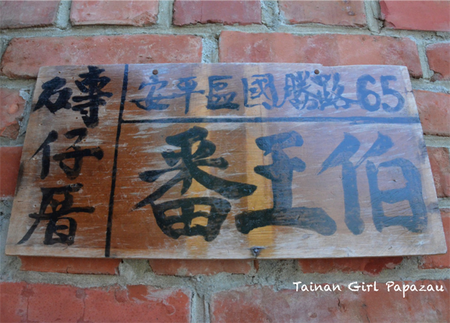 磚仔厝
安平區國勝路65
番王伯
Tainan Girl Papazau